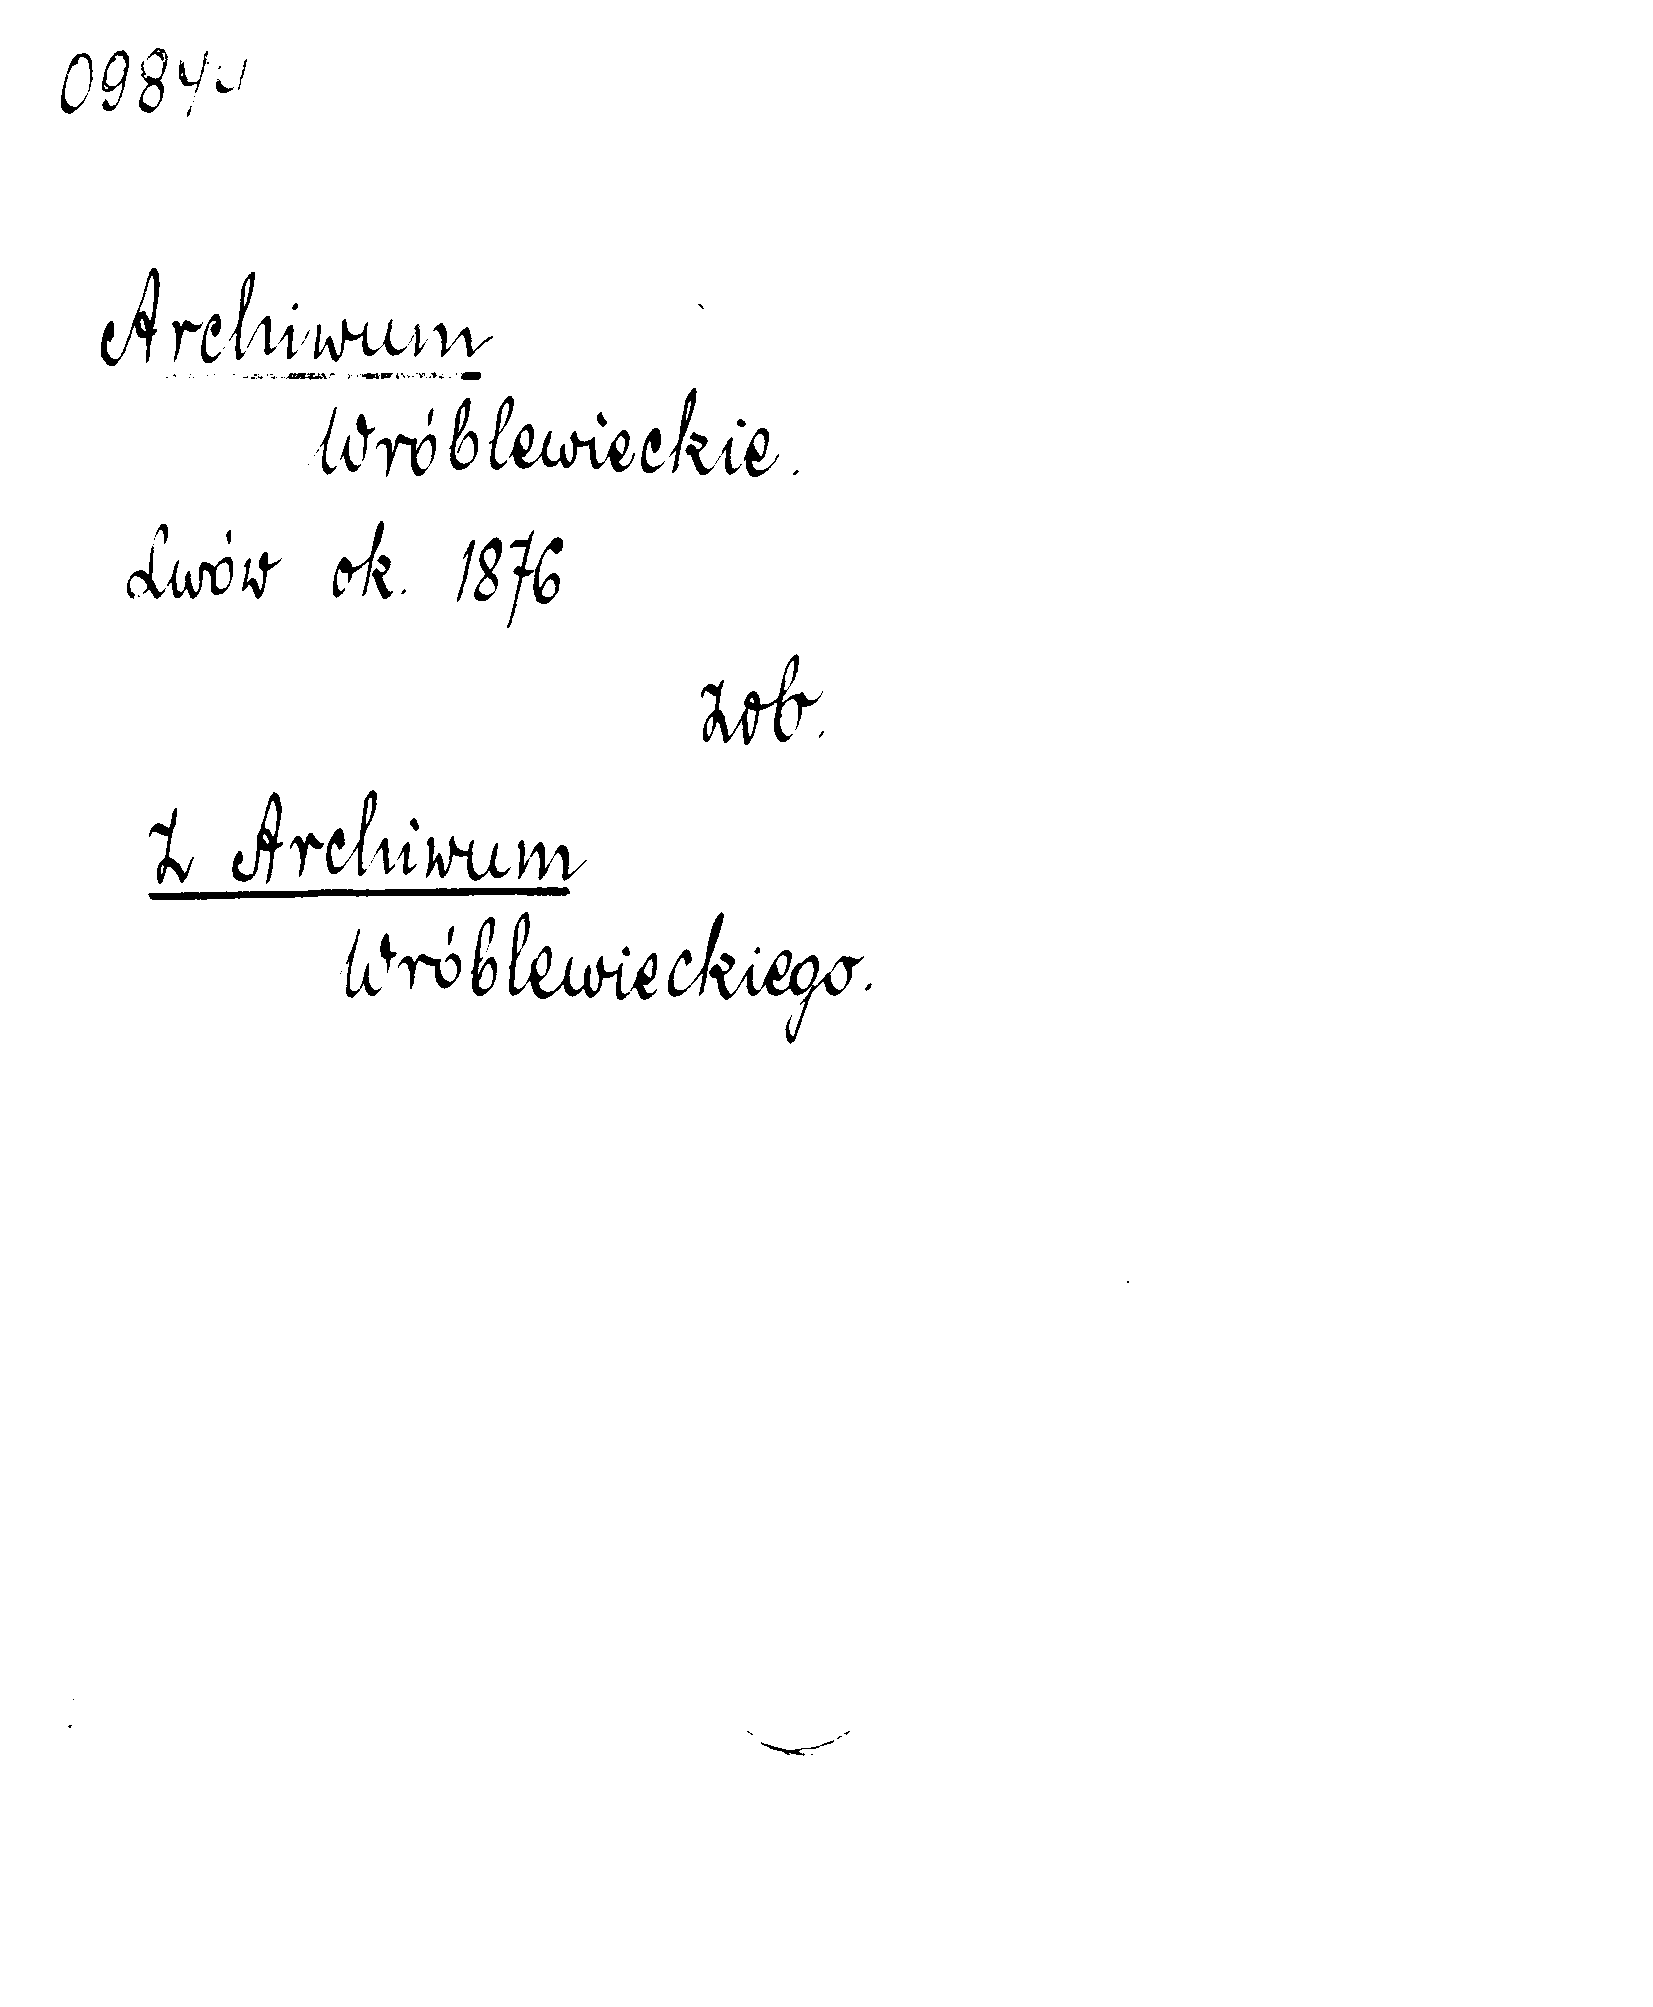 Archiwum
Wróblewieckie.
Lwów ok. 1876
zob.
Z Archiwum
Wróblewieckiego.